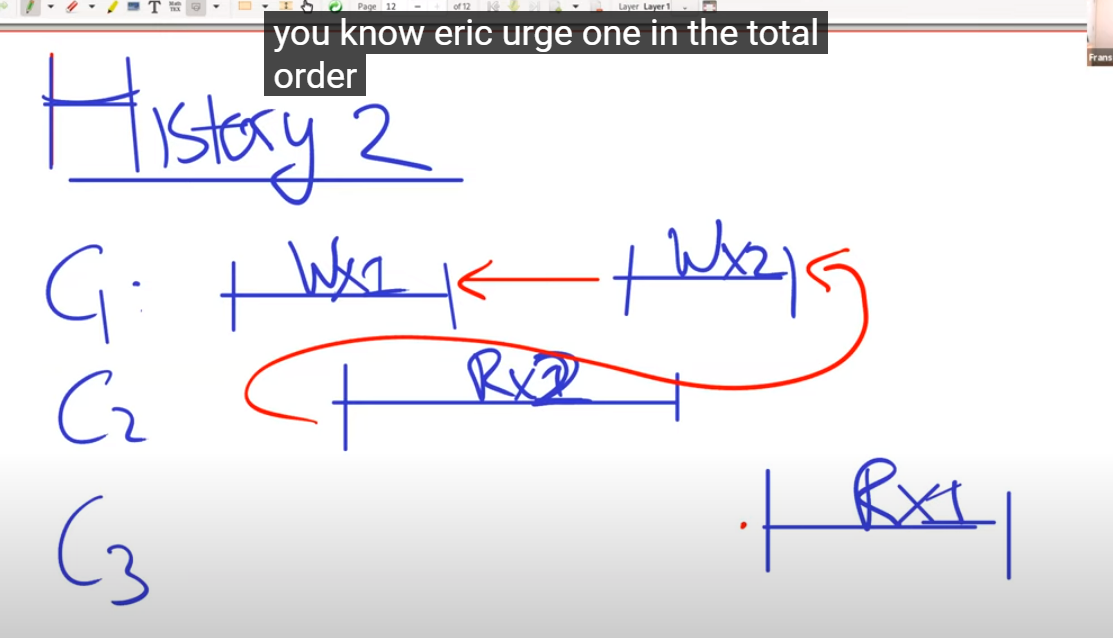 Page 12 of 12 Layer Layer 1
you know eric urge one in the total
order
Frans
History 2
C1: Wx1 Wx2
C2 Rx2
C3 Rx1